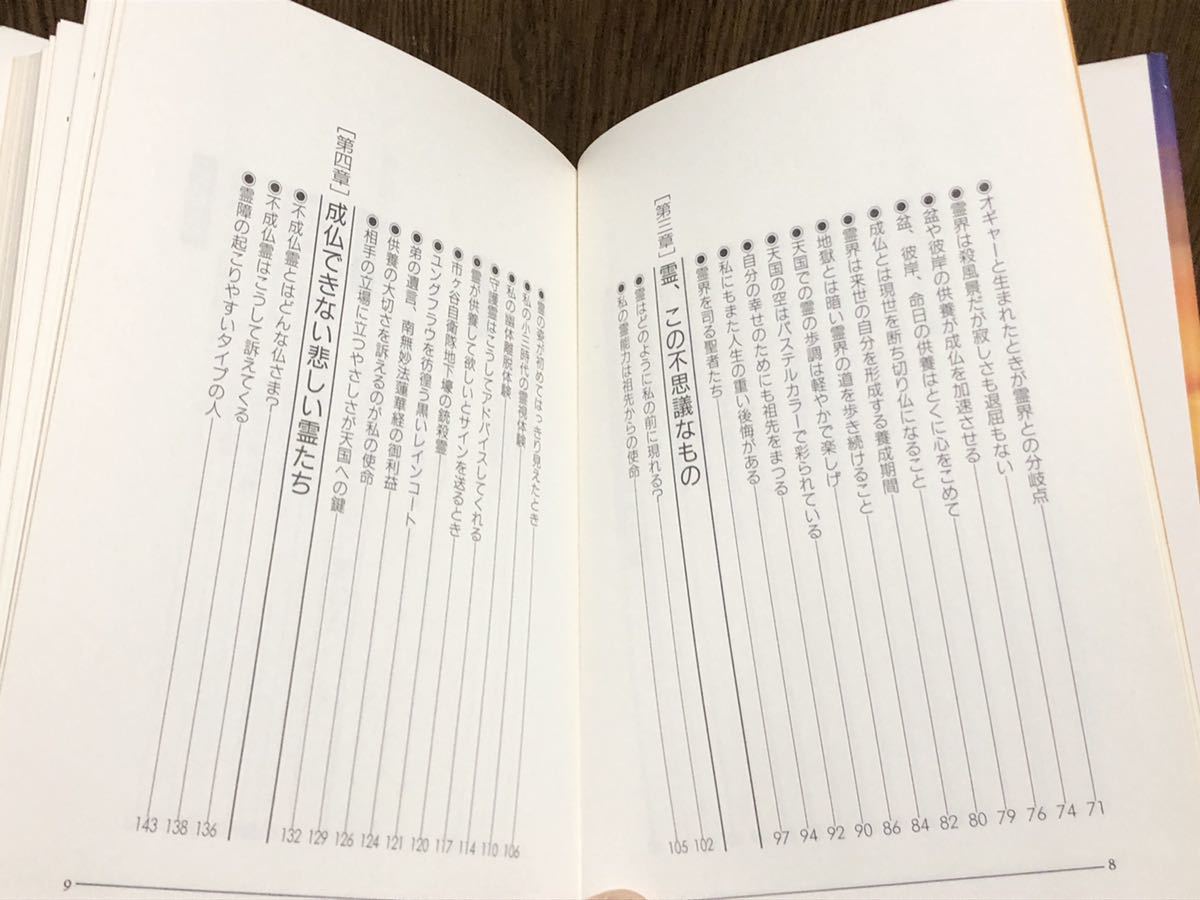 ●オギャーと生まれたときが霊界との分岐点 71
●霊界は殺風景だが寂しさも退屈もない 74
●盆や彼岸の供養が成仏を加速させる 76
●盆、彼岸、命日の供養はとくに心をこめて 79
●成仏とは現世を断ち切り仏になること 80
●霊界は来世の自分を形成する養成期間 82
●地獄とは暗い霊界の道を歩き続けること 84
●天国での霊の歩調は軽やかで楽しげ 86
●天国の空はパステルカラーで彩られている 90
●自分の幸せのためにも祖先をまつる 92
●私にもまた人生の重い後悔がある 94
●霊界を司る聖者たち 97
[第三章] 霊、この不思議なもの
●霊はどのように私の前に現れる? 102
●私の霊能力は祖先からの使命 105
8
●霊の姿が初めてはっきり見えたとき 106
●私の小三時代の霊視体験 110
●私の幽体離脱体験 114
●守護霊はこうしてアドバイスしてくれる 117
●霊が供養して欲しいとサインを送るとき 120
●市ヶ谷自衛隊地下壕の銃殺霊 121
●ユングフラウを彷徨う黒いレインコート 124
●弟の遺言、南無妙法蓮華経の御利益 126
●供養の大切さを訴えるのが私の使命 129
●相手の立場に立つやさしさが天国への鍵 132
[第四章] 成仏できない悲しい霊たち
●不成仏霊とはどんな仏さま? 136
●不成仏霊はこうして訴えてくる 138
●霊障の起こりやすいタイプの人 143
9